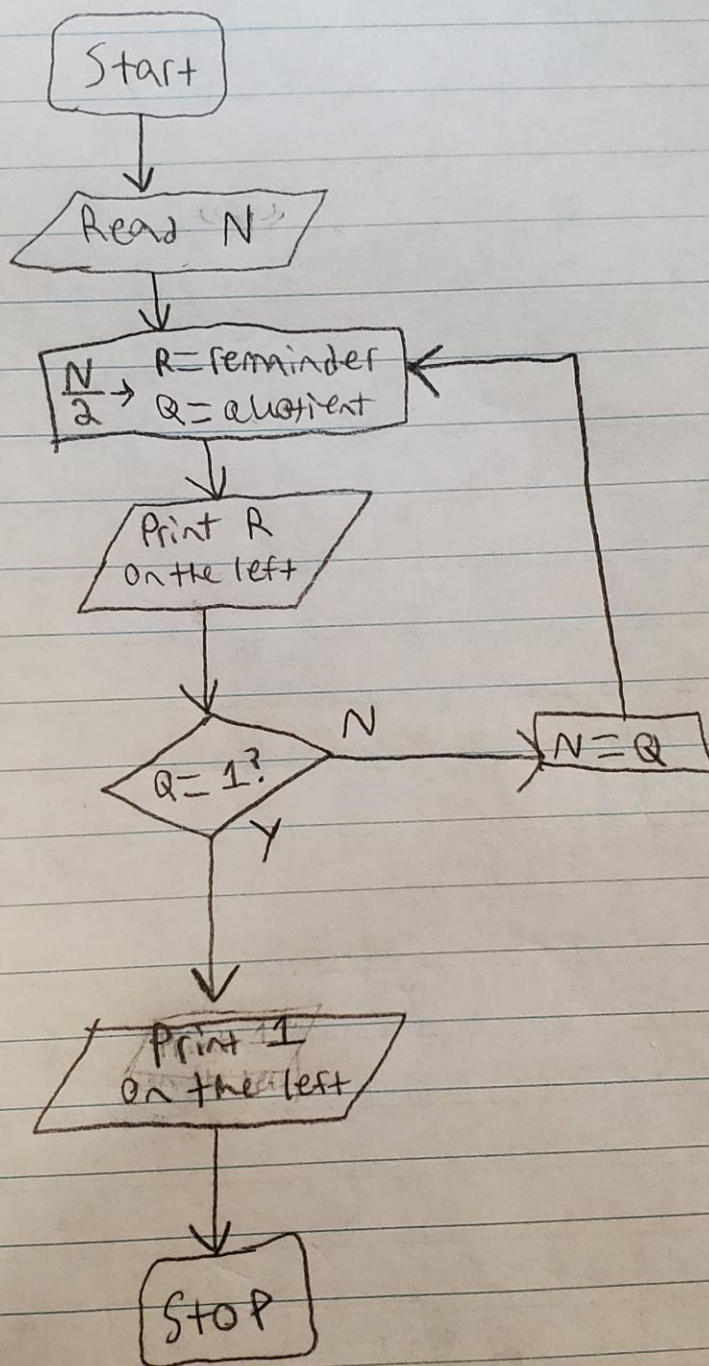 Start
Read "N"
N/2 → R=remainder
Q=quotient
Print R
on the left
Q=1?
N
N=Q
Y
Print 1
on the left
Stop